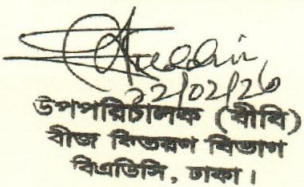 22/02/26
উপপরিচালক (বীবি)
বীজ বিতরণ বিভাগ
বিএডিসি, ঢাকা।